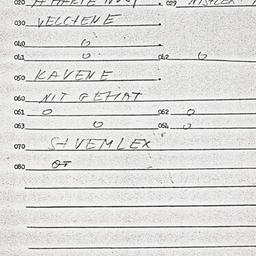 020 029
030 VELCHENE
040 0
041 0 042 0
050 KAVENE
060 NIT GEHAT
061 0 062 0
063 0 064 0
070 SIVEMLEX
080